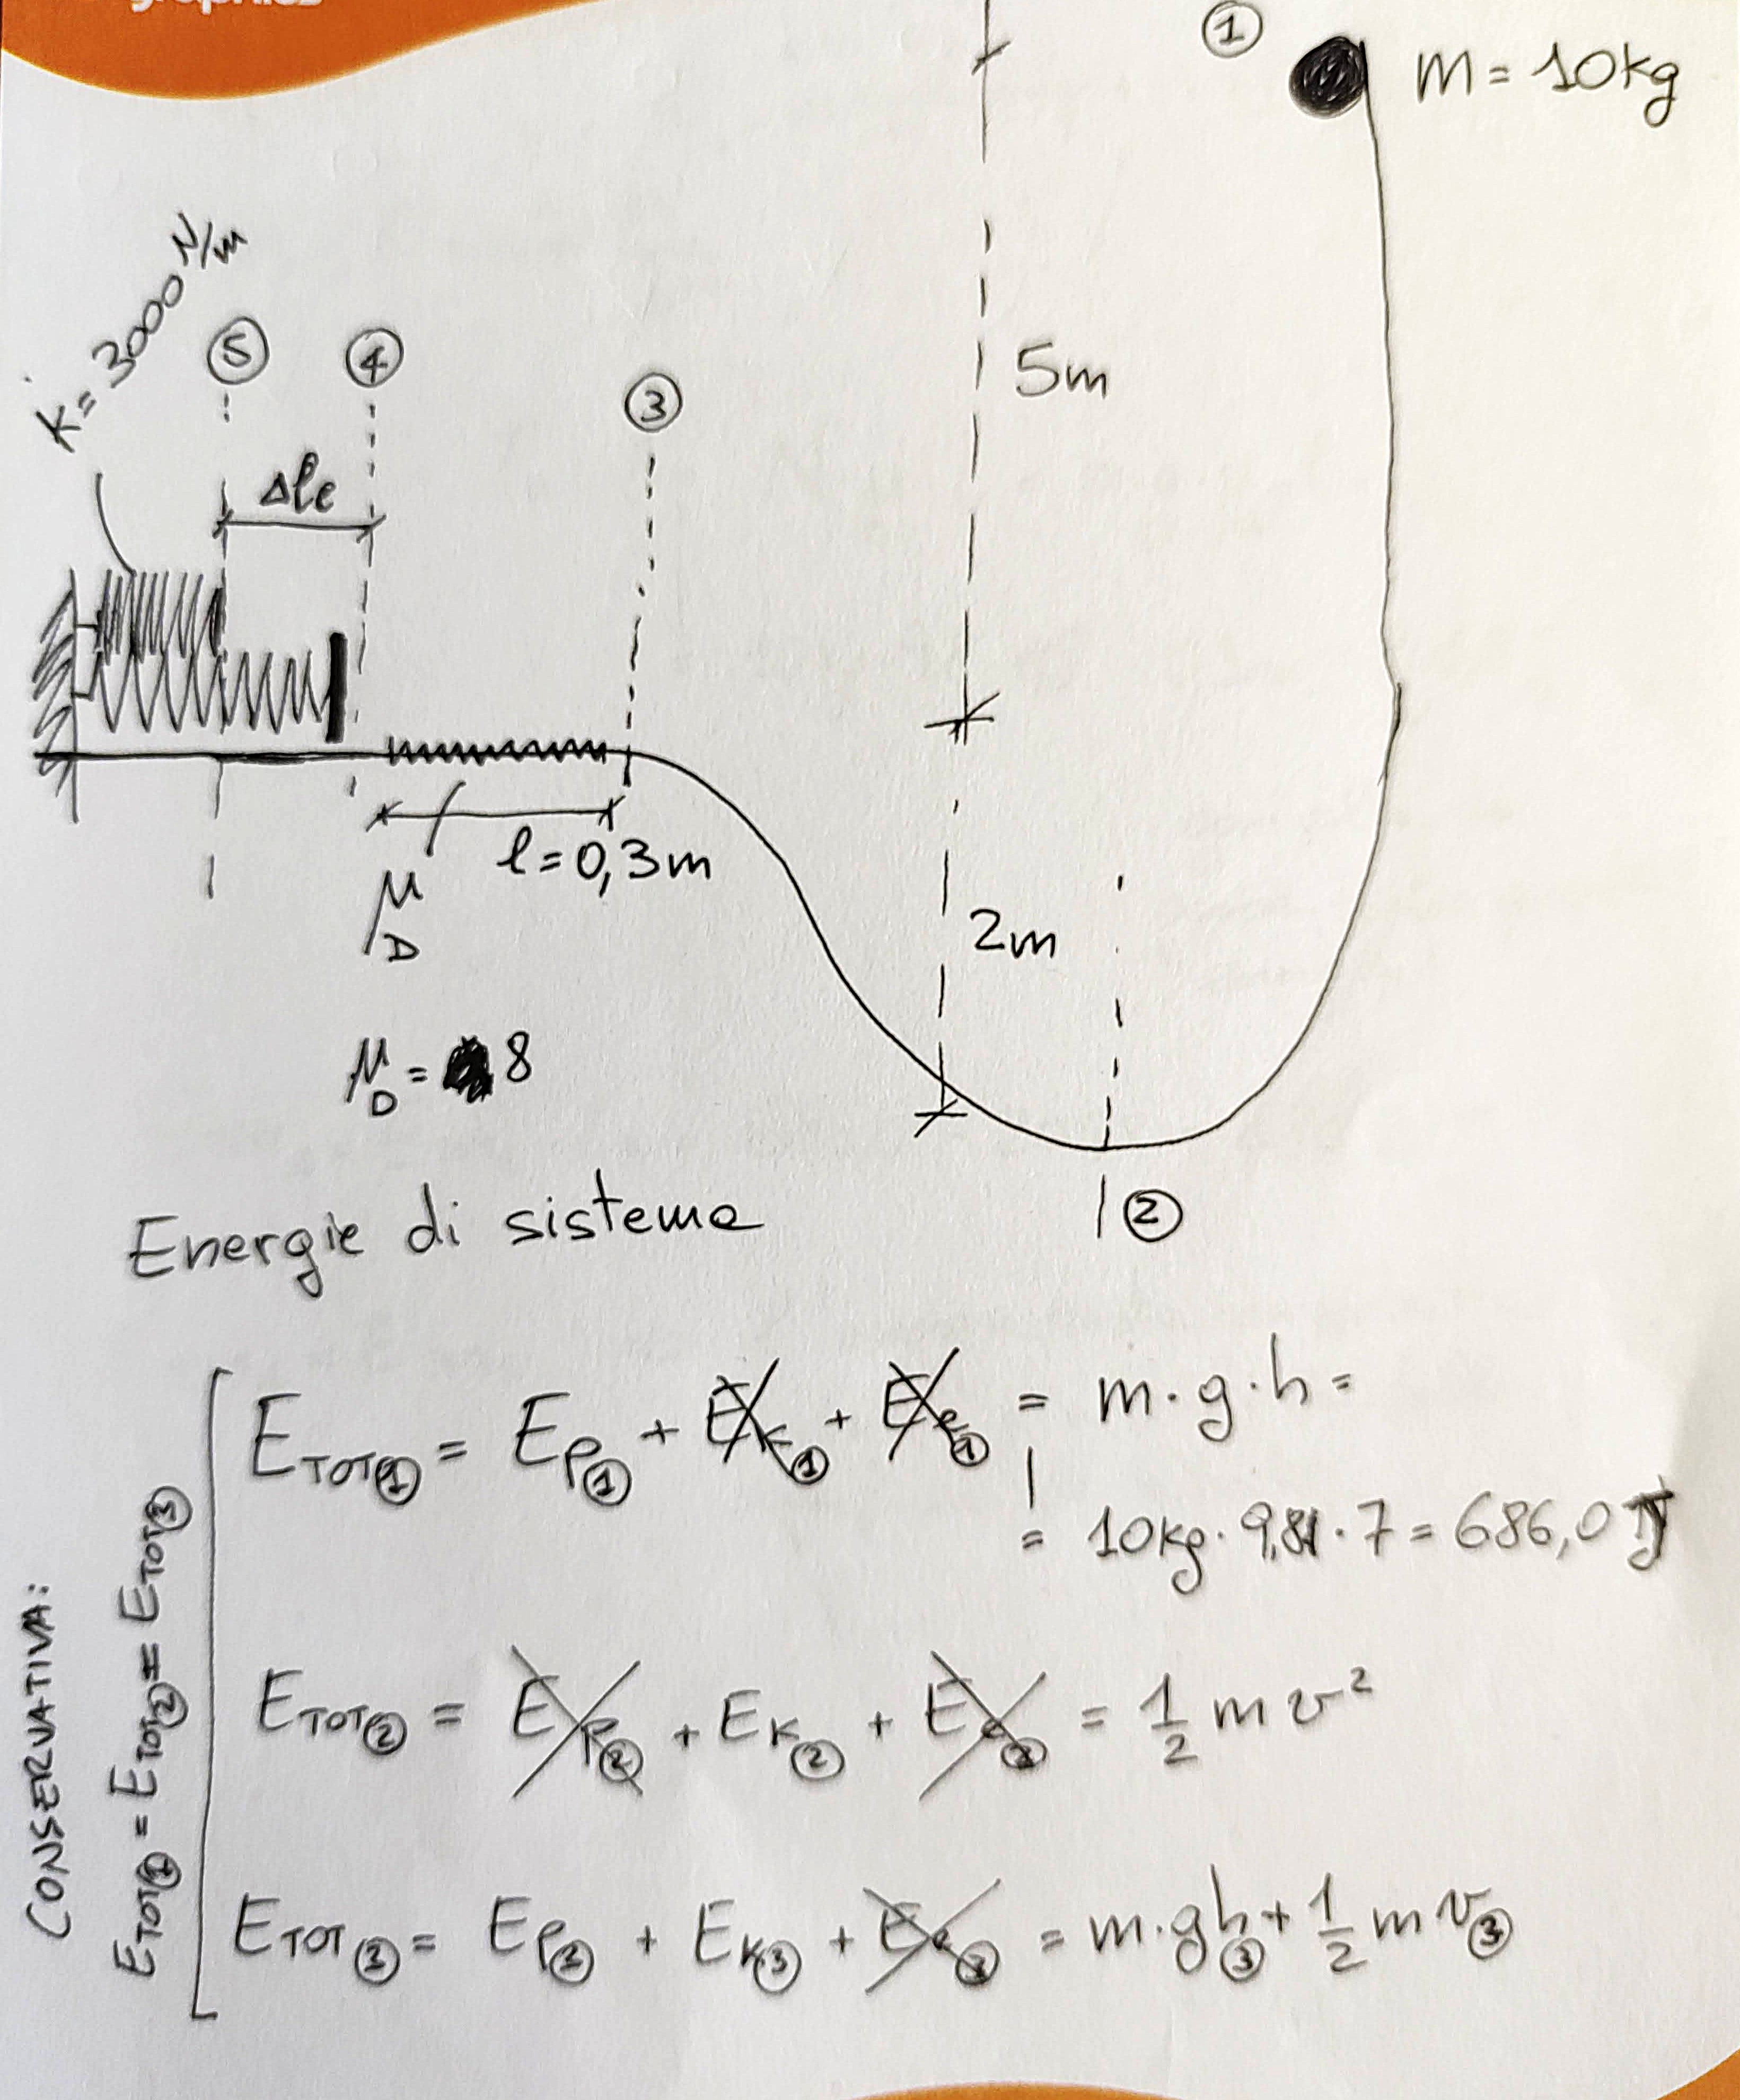 graphics
① m = 10kg
k = 3000 N/m
⑤ ④ ③
Δle
5m
l = 0,3m
μD
2m
μD = 8
②
Energie di sistema
CONSERVATIVA:
ETOT① = ETOT② = ETOT③
ETOT① = Ep① + EK① + Ee① = m·g·h =
= 10kg · 9,81 · 7 = 686,0 J
ETOT② = Ep② + EK② + Ee② = 1/2 m v²
ETOT③ = Ep③ + EK③ + Ee③ = m·gh③ + 1/2 m v③